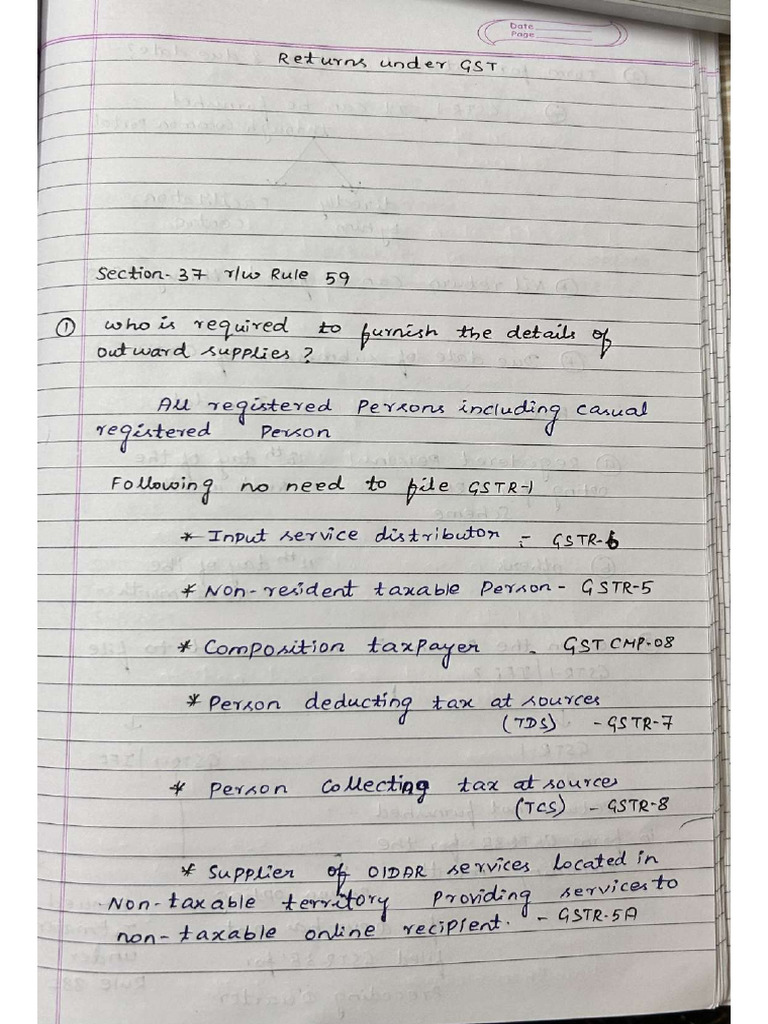 Date
Page
Returns under GST
Section-37 r/w Rule 59
① Who is required to furnish the details of
outward supplies?
All registered Persons including casual
registered Person
Following no need to file GSTR-1
* Input service distributor - GSTR-6
* Non-resident taxable Person - GSTR-5
* Composition taxpayer - GST CMP-08
* Person deducting tax at sources
(TDS) - GSTR-7
* Person collecting tax at sources
(TCS) - GSTR-8
* Supplier of OIDAR services located in
Non-taxable territory Providing services to
non-taxable online recipient. - GSTR-5A